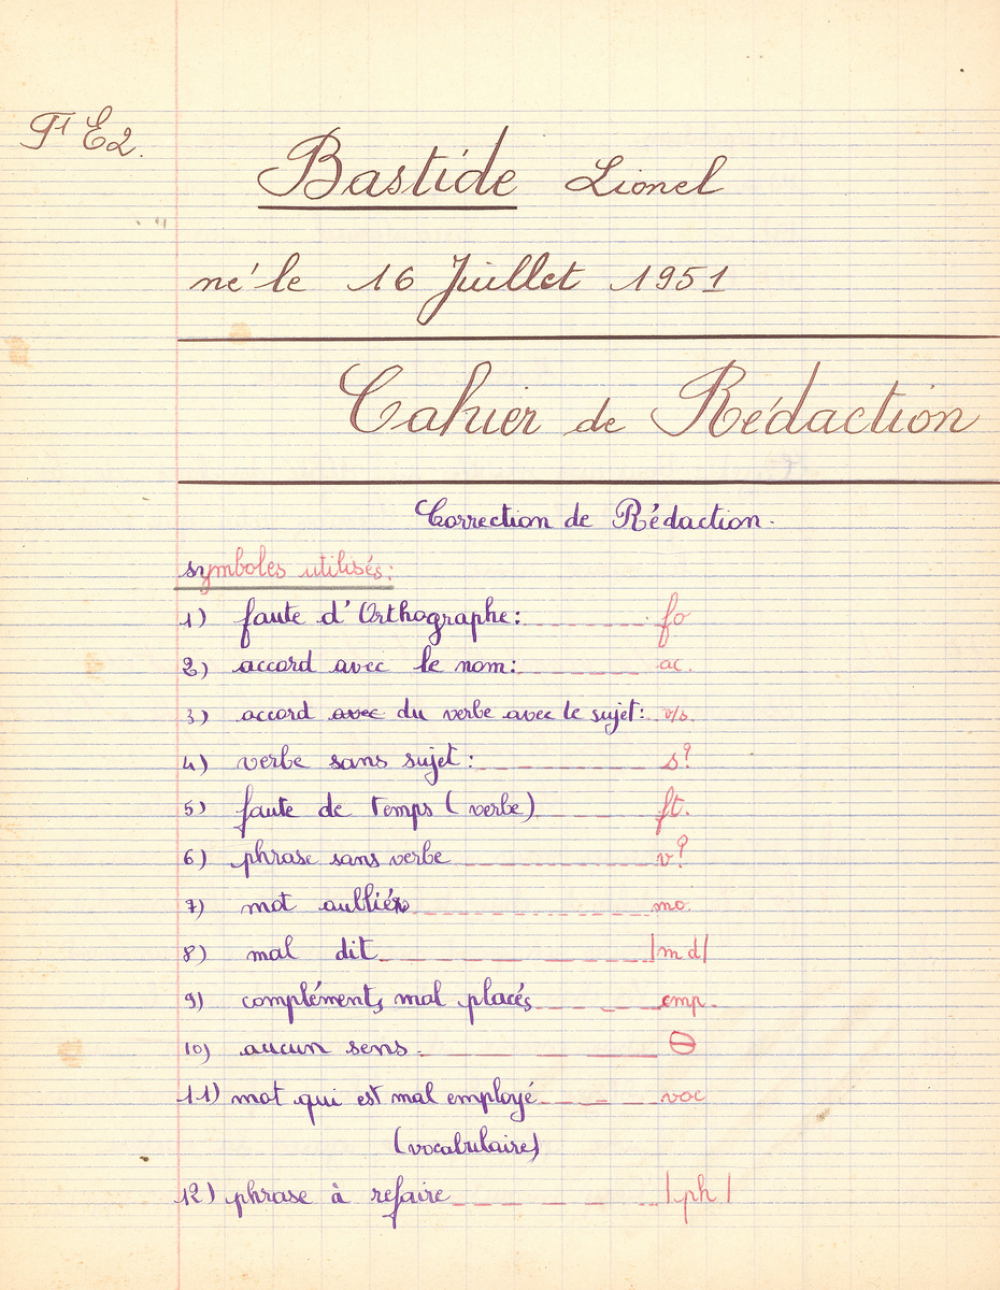 F1 E2.
Bastide Lionel
né le 16 Juillet 1951
Cahier de Rédaction
Correction de Rédaction.
symboles utilisés:
1) faute d'Orthographe: fo
2) accord avec le nom: ac.
3) accord avec du verbe avec le sujet: v/s.
4) verbe sans sujet: s?
5) faute de Temps (verbe) ft.
6) phrase sans verbe v?
7) mot oublié mo.
8) mal dit |md|
9) compléments mal placés cmp.
10) aucun sens. ⊖
11) mot qui est mal employé voc
(vocabulaire)
12) phrase à refaire |ph|